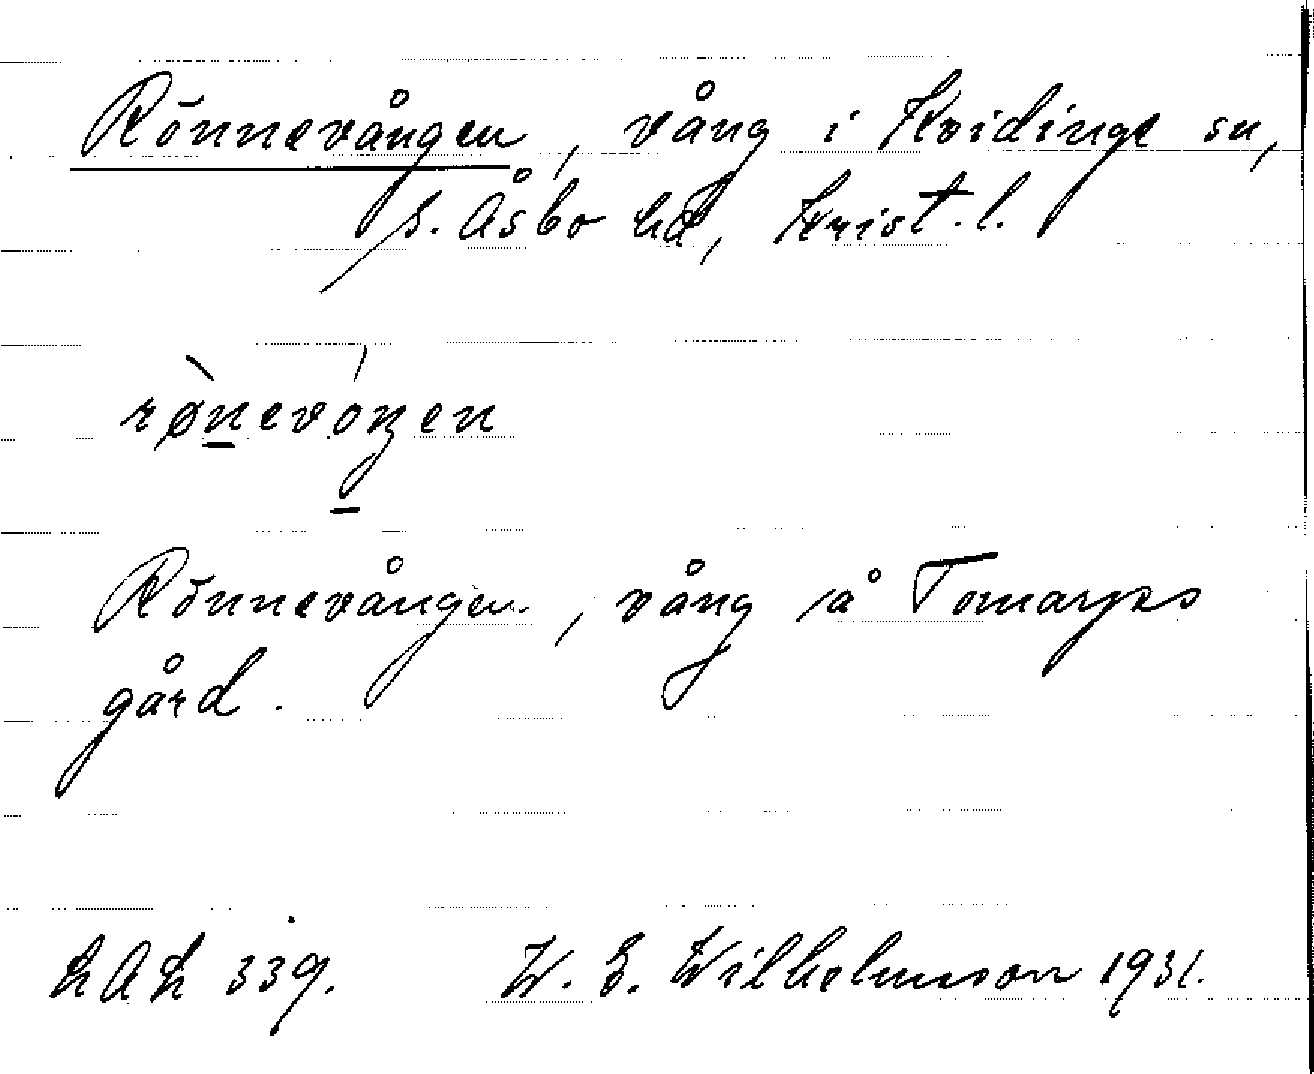 Rönnevången, vång i Kvidinge sn,
S. Åsbo hd, Krist. l.
rø̀nevóŋen
Rönnevången, vång på Tomarps
gård.
LAL 339. W. E. Wilhelmson 1931.